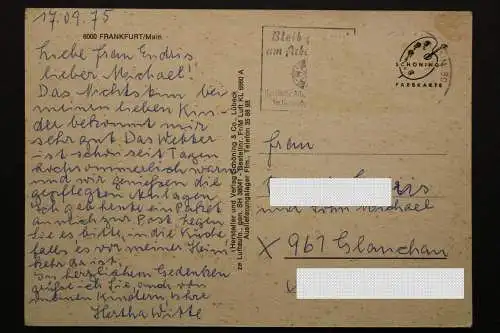 17.09.75
6000 FRANKFURT/Main
Liebe Frau Endris
lieber Michael!
Das Nichtstun bei
meinen lieben Kin-
der bekommt mir
sehr gut. Das Wetter
ist schon seit Tagen
hochsommerlich warm
und wir genießen die
gepflegten Anlagen
Ich gebe heute ein Paket
an mich zur Post. Legen
Sie es bitte in die Küche
falls es vor meiner Heim-
kehr da ist.
In herzlichem Gedenken
grüßt ich Sie, und von
meinen Kindern, Ihre
Hertha Witte
Hersteller und Verlag Schöning & Co., Lübeck
Bestellnr. Fr/M Luft KL 6960 A
Bleib
am
SCHÖNING
FARBKARTE
Frau
und Sohn Michael
X 961 Glauchau